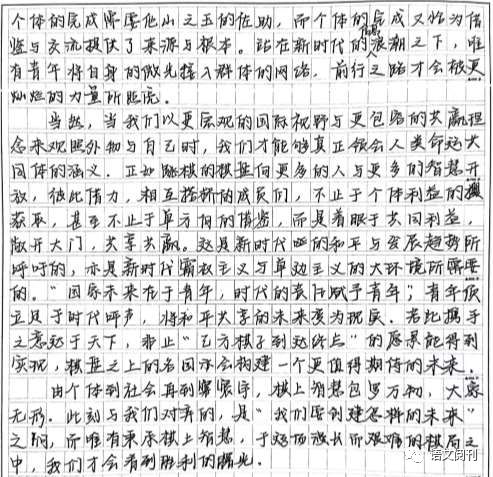 个体的完成需要他山之玉的佐助，而个体的完成又恰为借
鉴与交流提供了来源与根本。站在新时代的浪潮之下，唯
有青年将自身的微光接入群体的网络，前行之路才会被更
灿烂的力量所照亮。
当然，当我们以更宏观的国际视野与更包容的共赢理
念来观照外物与自己时，我们才能够真正领会人类命运共
同体的涵义。正如跳棋的棋盘向更多的人与更多的智慧开
放，彼此借力，相互搭桥的成员们，不止于个体利益的
获取，甚至不止于单方面的借鉴，而是着眼于共同利益，
敞开大门，共享共赢。这是新时代的和平与发展趋势所
呼吁的，亦是新时代霸权主义与单边主义的大环境所需要
的。“国家未来在于青年，时代的责任赋予青年”；青年须
立足于时代呼声，将和平共享的未来变为现实。若此携手
之意达于天下，那止“己方棋子到达终点”的愿景能得到
实现，棋盘之上的各国亦会构建一个更值得期待的未来。
由个体到社会再到寰宇，棋上智慧包罗万物，大象
无形。此刻与我们对弈的，是“我们要创建怎样的未来”
之问，而唯有秉承棋上智慧，于这场漫长而艰难的棋局之
中，我们才会看到胜利的曙光。
语文月刊